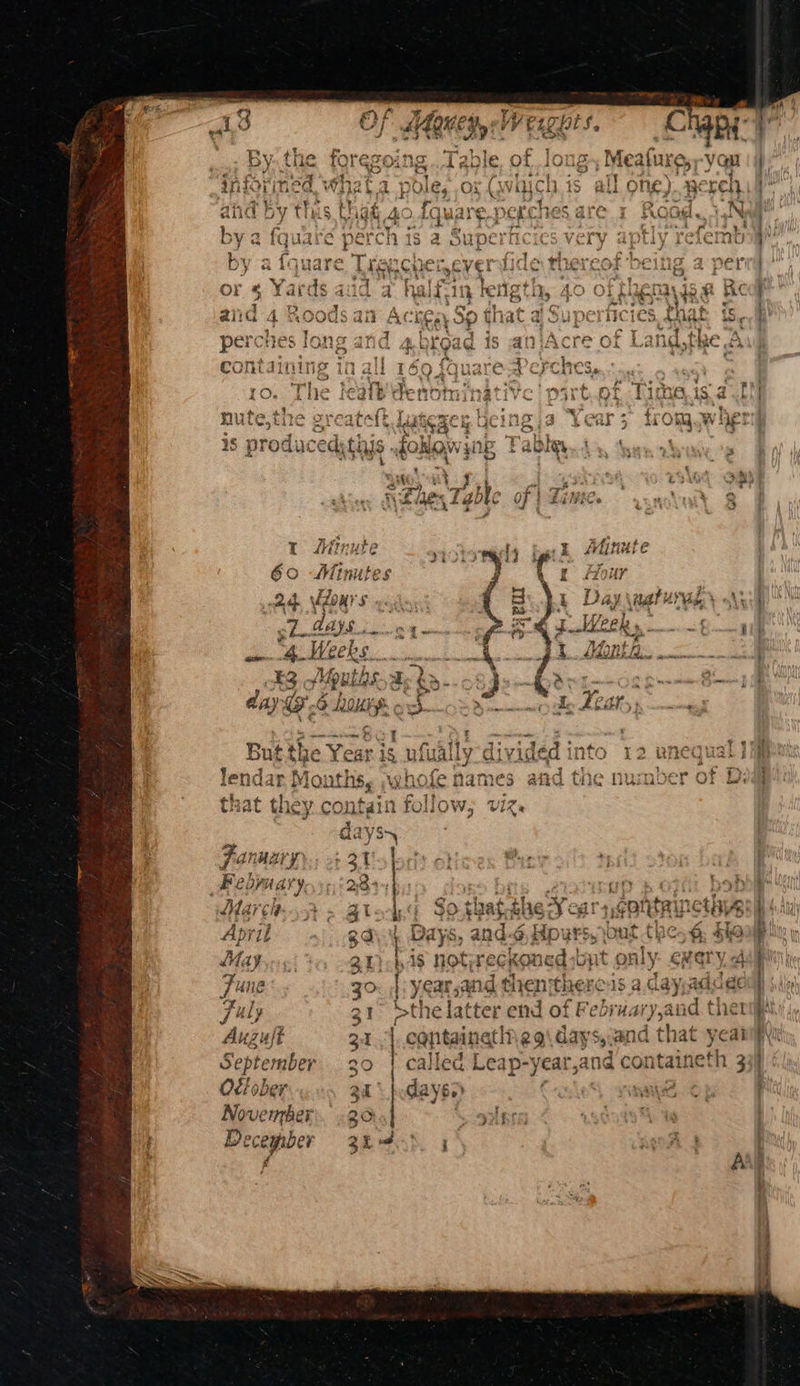 18 Of Money, Weights. Chap.
By the foregoing Table, of long, Meaſure, you
informed, what a pole, or (which is all one) perch
and by this, that 40 ſquare perches are 1 Rood.
by a ſquare perch is a Superficies very aptly reſemb
by a ſquare Trencher, ever ſide thereof being a per
or 5 Yards and a half in length, 40 of them is a
and 4 Roods an Acre, So that a Superficies that is
perches long and 4 broad is an Acre of Land, the
containing in all 160 ſquare Perches.
10. The leaſt denominative part of Time is a
nute, the greateſt Integer being a Year; from
is produced this following Table.
The Table of Time.
1 Minute 1 Minute
60 Minutes 1 Hour
24 Hours 1 Day natural
7 days 1 Week
4 Weeks 1 Month
13 Months,
day & 6 hours Year
But the Year is uſually divided into 12 unequal
lendar Months, whoſe names and the number of
that they contain follow, viz.
days
January 31
February 28
March 31 So that the Year containeth
April 30 Days, and 6 Hours, but the 6
May 31 is not reckoned but only every
June 30 year, and then there is a day added
July 31 the latter end of February, and
Auguſt 31 containeth 29 days, and that year
September 30 called Leap-year, and containeth
October 31 days
November 30
December 31